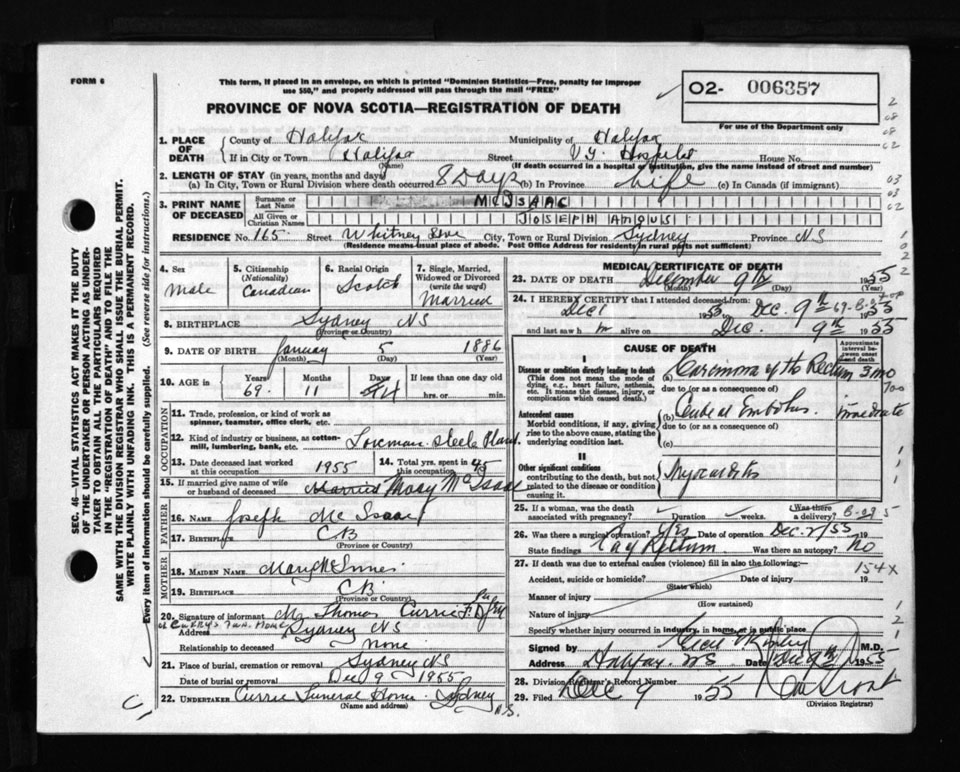 FORM 6
This form, if placed in an envelope, on which is printed "Dominion Statistics—Free, penalty for improper
use $50," and properly addressed will pass through the mail "FREE"
PROVINCE OF NOVA SCOTIA—REGISTRATION OF DEATH
02- 006357
For use of the Department only
2
08
08
02
03
03
02
1. PLACE OF DEATH
County of Halifax Municipality of Halifax
If in City or Town Halifax Street V.G. Hospital House No.
(Name) (If death occurred in a hospital or institution, give the name instead of street and number)
2. LENGTH OF STAY (in years, months and days)
(a) In City, Town or Rural Division where death occurred 8 Days (b) In Province Life (c) In Canada (if immigrant)
3. PRINT NAME OF DECEASED
Surname or Last Name McISAAC
All Given or Christian Names JOSEPH ANGUS
RESIDENCE No. 165 Street Whitney City, Town or Rural Division Sydney Province NS
(Residence means usual place of abode. Post Office Address for residents in rural parts not sufficient)
4. Sex
Male
5. Citizenship (Nationality)
Canadian
6. Racial Origin
Scotch
7. Single, Married, Widowed or Divorced (write the word)
Married
8. BIRTHPLACE Sydney NS
(Province or Country)
9. DATE OF BIRTH January 5 1886
(Month) (Day) (Year)
10. AGE in Years Months Days If less than one day old
69 11 hrs. or min.
OCCUPATION
11. Trade, profession, or kind of work as
spinner, teamster, office clerk, etc.
12. Kind of industry or business, as cotton-
mill, lumbering, bank, etc. Foreman. Steele Plant.
13. Date deceased last worked at this occupation 1955
14. Total yrs. spent in this occupation 45
15. If married give name of wife
or husband of deceased Married Mary McIsaac
FATHER
16. NAME Joseph McIsaac
17. BIRTHPLACE CB
(Province or Country)
MOTHER
18. MAIDEN NAME Mary McInnes
19. BIRTHPLACE CB
(Province or Country)
20. Signature of informant Mr Thomas Currie
at Curry's Fun. Home
Address Sydney NS
Relationship to deceased None
21. Place of burial, cremation or removal Sydney NS
Date of burial or removal Dec 9 1955
22. UNDERTAKER Currie Funeral Home. Sydney N.S.
(Name and address)
MEDICAL CERTIFICATE OF DEATH
23. DATE OF DEATH December 9th 1955
(Month) (Day) (Year)
24. I HEREBY CERTIFY that I attended deceased from:
Dec 1 1955 Dec. 9th 1955
and last saw h m alive on Dec. 9th 1955
CAUSE OF DEATH
Approximate interval between onset and death
I
Disease or condition directly leading to death
(This does not mean the mode of dying, e.g., heart failure, asthenia, etc. It means the disease, injury, or complication which caused death.)
(a) Carcinoma of the Rectum 3 mo
due to (or as a consequence of)
Antecedent causes
Morbid conditions, if any, giving rise to the above cause, stating the underlying condition last.
(b) Cerebral Embolus. immediate
due to (or as a consequence of)
(c)
II
Other significant conditions
contributing to the death, but not related to the disease or condition causing it.
Myocarditis
25. If a woman, was the death associated with pregnancy? Duration weeks. Was there a delivery?
26. Was there a surgical operation? Yes Date of operation Dec. 2/55 19
State findings Ca of Rectum Was there an autopsy? No
27. If death was due to external causes (violence) fill in also the following:—
154X
Accident, suicide or homicide? Date of injury 19
(State which)
Manner of injury
(How sustained)
Nature of injury
Specify whether injury occurred in industry, in home, or in public place
Signed by M.D.
Address Halifax NS Date Dec 9th 1955
28. Division Registrar's Record Number
29. Filed Dec 9 1955
(Division Registrar)
SEC. 46—VITAL STATISTICS ACT MAKES IT THE DUTY
OF THE UNDERTAKER OR PERSON ACTING AS UNDER-
TAKER TO OBTAIN ALL THE PARTICULARS REQUIRED
IN THE "REGISTRATION OF DEATH" AND TO FILE THE
SAME WITH THE DIVISION REGISTRAR WHO SHALL ISSUE THE BURIAL PERMIT.
WRITE PLAINLY WITH UNFADING INK. THIS IS A PERMANENT RECORD.
Every item of information should be carefully supplied. (See reverse side for instructions.)